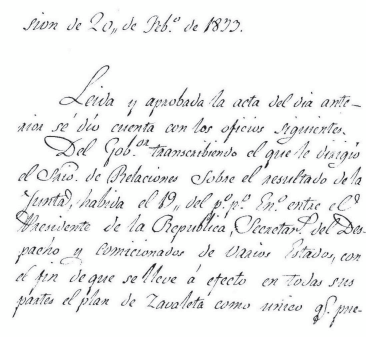 sion de 20,, de Feb.º de 1833.
Leida y aprobada la acta del dia ante-
rior sé dió cuenta con los oficios siguientes.
Del Gob.or transcribiendo el que le dirigió
el Srio. de Relaciones Sobre el resultado de la
Junta, habida el 19,, del p.º p.º En.º entre el
Presidente de la Republica, Secretar.s del Des-
pacho y comicionados de varios Estados, con
el fin de que se lleve á efecto en todas sus
partes el plan de Zavaleta como unico q.e pue-